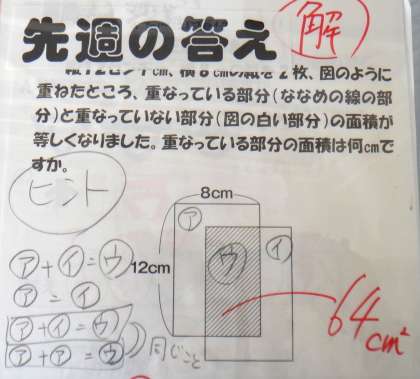 先週の答え
解
縦12センチcm、横8cmの紙を2枚、図のように
重ねたところ、重なっている部分(ななめの線の部
分)と重なっていない部分(図の白い部分)の面積が
等しくなりました。重なっている部分の面積は何cmで
すか。
ヒント
8cm
ア
12cm
ウ
イ
ア+イ=ウ
ア=イ
ア+イ=ウ
ア+ア=ウ
同じこと
64cm²